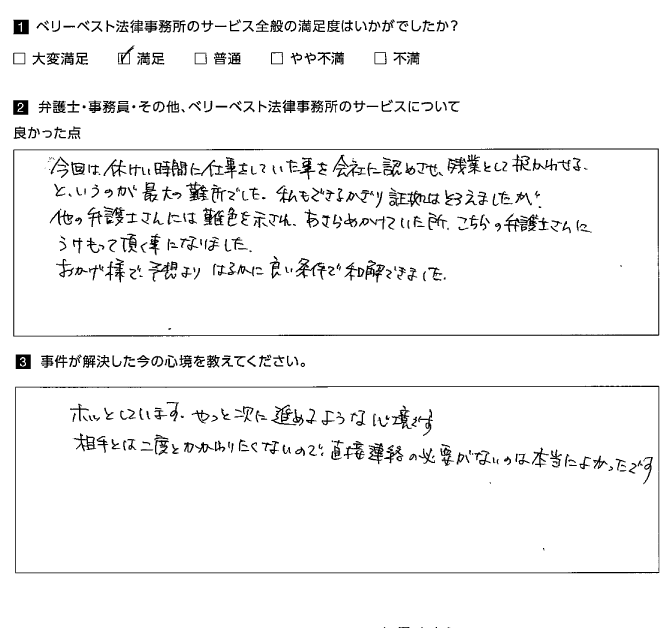 1 ベリーベスト法律事務所のサービス全般の満足度はいかがでしたか？
□ 大変満足 ☑ 満足 □ 普通 □ やや不満 □ 不満
2 弁護士・事務員・その他、ベリーベスト法律事務所のサービスについて
良かった点
今回は、休けい時間に仕事をしていた事を会社に認めさせ、残業として扱かわせる、
と、いうのが最大の難所でした。私もできるかぎり証拠はとらえましたが、
他の弁護士さんには難色を示され、あきらめかけていた所、こちらの弁護士さんに
うけもって頂く事になりました。
おかげ様で、予想より はるかに良い条件で和解できました。
3 事件が解決した今の心境を教えてください。
ホッとしています。やっと次に進めるような心境です
相手とは二度とかかわりたくないので、直接連絡の必要がないのは本当によかったです